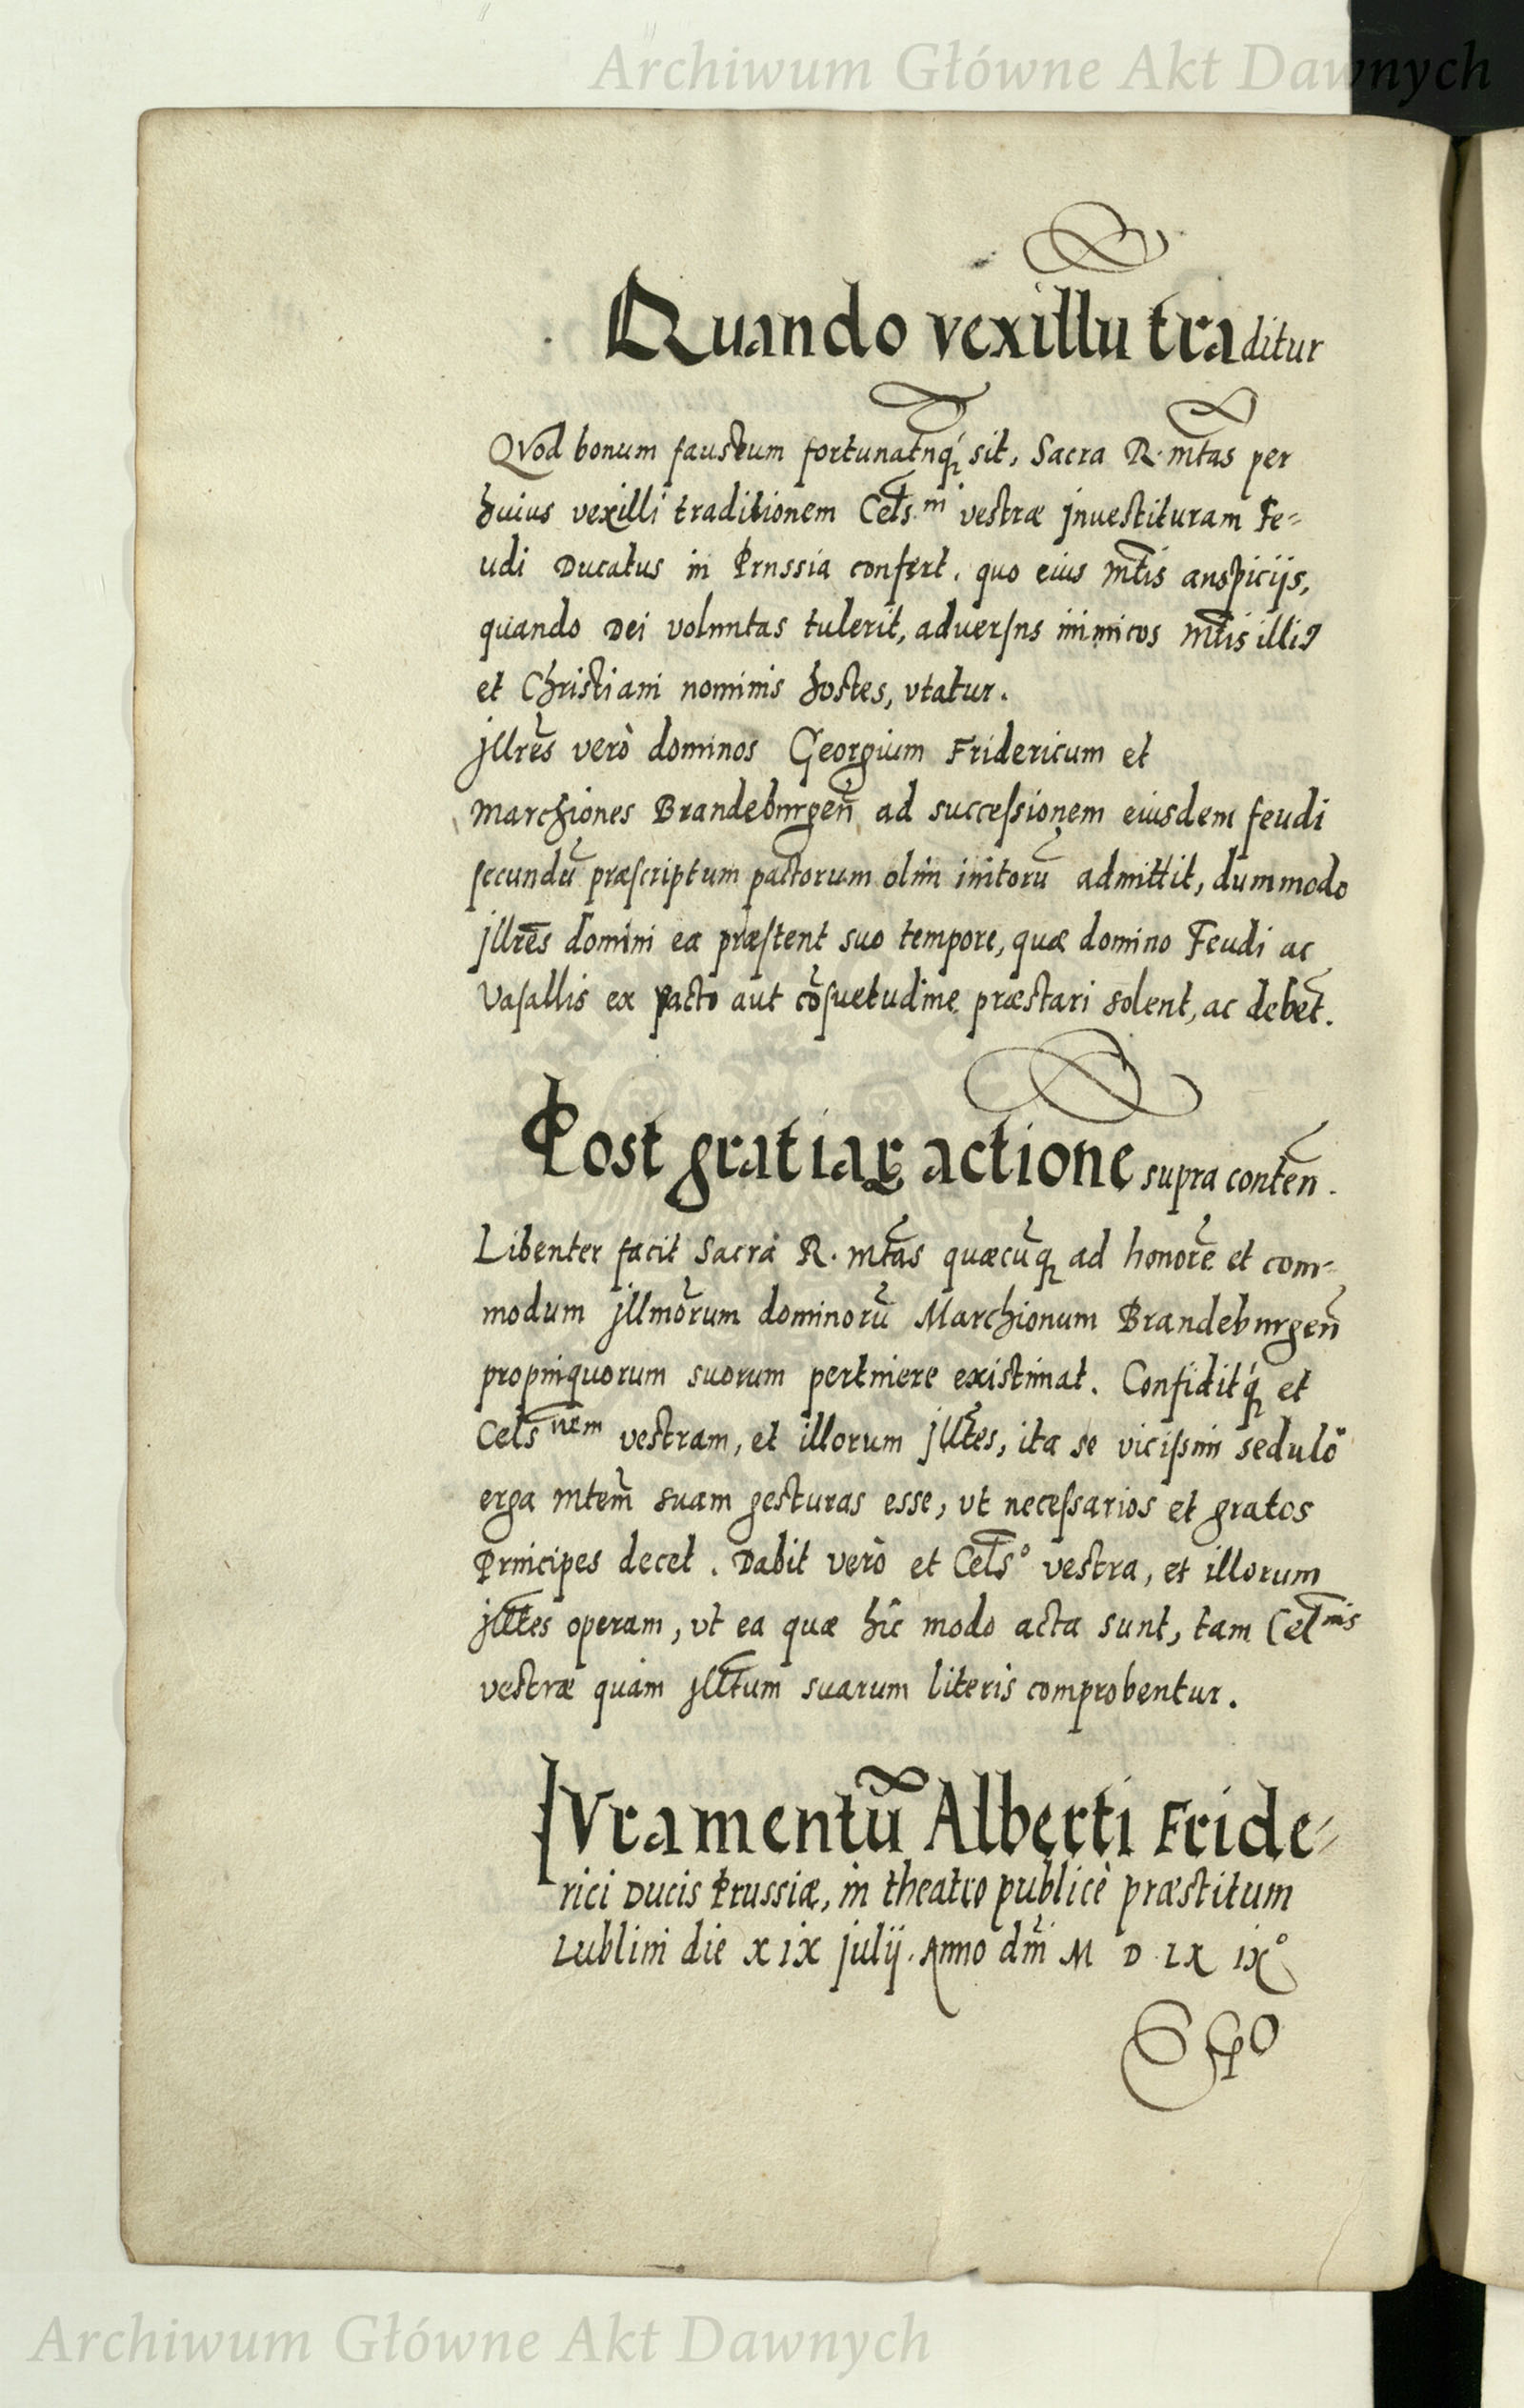 Archiwum Główne Akt Dawnych
Quando vexillu traditur
QVod bonum faustum fortunatūq́ꝫ sit, Sacra R. mt̃as per
huius vexilli traditionem Cels.ni vestræ jnuestituram Fe-
udi Ducatus in Prussia confert, quo eius mt̃is auspicijs,
quando Dei voluntas tulerit, aduersus inimicos mt̃is illiꝰ
et Christiani nominis hostes, vtatur.
jllrẽs verò dominos Georgium Fridericum et
Marchiones Brandeburgeñ ad successionem eiusdem feudi
secundũ præscriptum pactorum olim initorũ admittit, dummodo
jllrẽs domini ea præstent suo tempore, quæ domino Feudi ac
Vasallis ex pacto aut cõsuetudine præstari solent, ac debẽt.
Post gratiaꝝ actione supra conteñ.
Libenter facit Sacra R. mt̃as quæcũqꝫ ad honorẽ et com-
modum jllmõrum dominorũ Marchionum Brandeburgeñ
propinquorum suorum pertinere existimat. Confiditq́ꝫ et
Cels̃nem vestram, et illorum jllt̃es, ita se vicissim sedulò
erga mtem̃ suam gesturas esse, vt necessarios et gratos
Principes decet. Dabit verò et Cel̃s° vestra, et illorum
jllt̃es operam, vt ea quæ hîc modo acta sunt, tam Cel̃nis
vestræ quàm jllt̃um suarum literis comprobentur.
JVramentũ Alberti Fride-
rici Ducis Prussiæ, in theatro publicè præstitum
Lublini die xix julij. Anno dñi M D LX IX°
Archiwum Główne Akt Dawnych